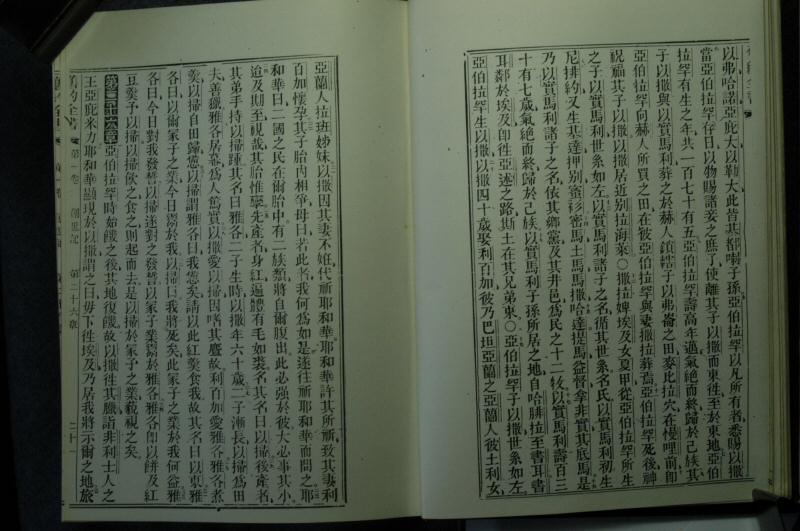 以弗哈諾亞庇大以勒大此皆基都喇子孫亞伯拉罕以凡所有者悉賜以撒
當亞伯拉罕存日以物賜諸妾之庶子使離其子以撒而東往至於東地亞伯
拉罕有生之年共一百七十有五亞伯拉罕壽高年邁氣絕而終歸於己族其
子以撒與以實馬利葬之於赫人瑣轄子以弗崙之田麥比拉穴在慢哩前卽
亞伯拉罕向赫人所買之田在彼亞伯拉罕與妻撒拉葬焉亞伯拉罕死後神
祝福其子以撒以撒居近別拉海萊○撒拉婢埃及女夏甲從亞伯拉罕所生
之子以實馬利世系如左以實馬利諸子之名循其世系名氏以實馬利初生
尼排約又生基達押別蜜衫密馬土馬馬撒哈達提馬益督拿非實其底馬是
乃以實馬利諸子之名依其鄉廬及其井邑爲民之十二牧以實馬利壽百三
十有七歲氣絕而終歸於己族以實馬利子孫所居之地自哈腓拉至書耳書
耳鄰於埃及卽往亞述之路斯土在其兄弟東○亞伯拉罕子以撒世系如左
亞伯拉罕生以撒以撒四十歲娶利百加彼乃巴坦亞蘭之亞蘭人彼土利女
亞蘭人拉班姊妹以撒因其妻不姙代祈耶和華耶和華許其所祈致其妻利
百加懷孕其子胎內相爭母曰若此者我何爲如是遂往祈耶和華而問之耶
和華曰二國之民在爾胎中有二族類將自爾腹出此必強於彼大必事其小
迨及期至視哉其胎惟孿先產者身紅遍體有毛如裘名其名曰以掃後產者
其弟手持以掃踵其名曰雅各二子生時以撒年六十歲二子漸長以掃爲田
夫善獵雅各居幕爲人篤實以撒愛以掃因嗜其麑故利百加愛雅各雅各煮
羹以掃自田歸憊以掃謂雅各曰我憊矣請以此紅羹食我故其名曰以東雅
各曰以爾冢子之業今日鬻於我以掃曰我將死矣此冢子之業於我何益雅
各曰今日對我發誓以掃遂對之發誓以冢子業鬻於雅各雅各卽以餅及紅
豆羹予以掃以掃飲之食之則起而去是以掃於冢子之業藐視之矣
第二十六章 亞伯拉罕時始饑之後其地復饑故以撒往其臘詣非利士人之
王亞庇米力耶和華顯現於以撒謂之曰毋下往埃及乃居我將示爾之地旅
舊約全書 第一卷 創世記 第二十六章 二十一